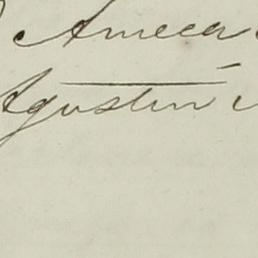 Ameca
Agustin